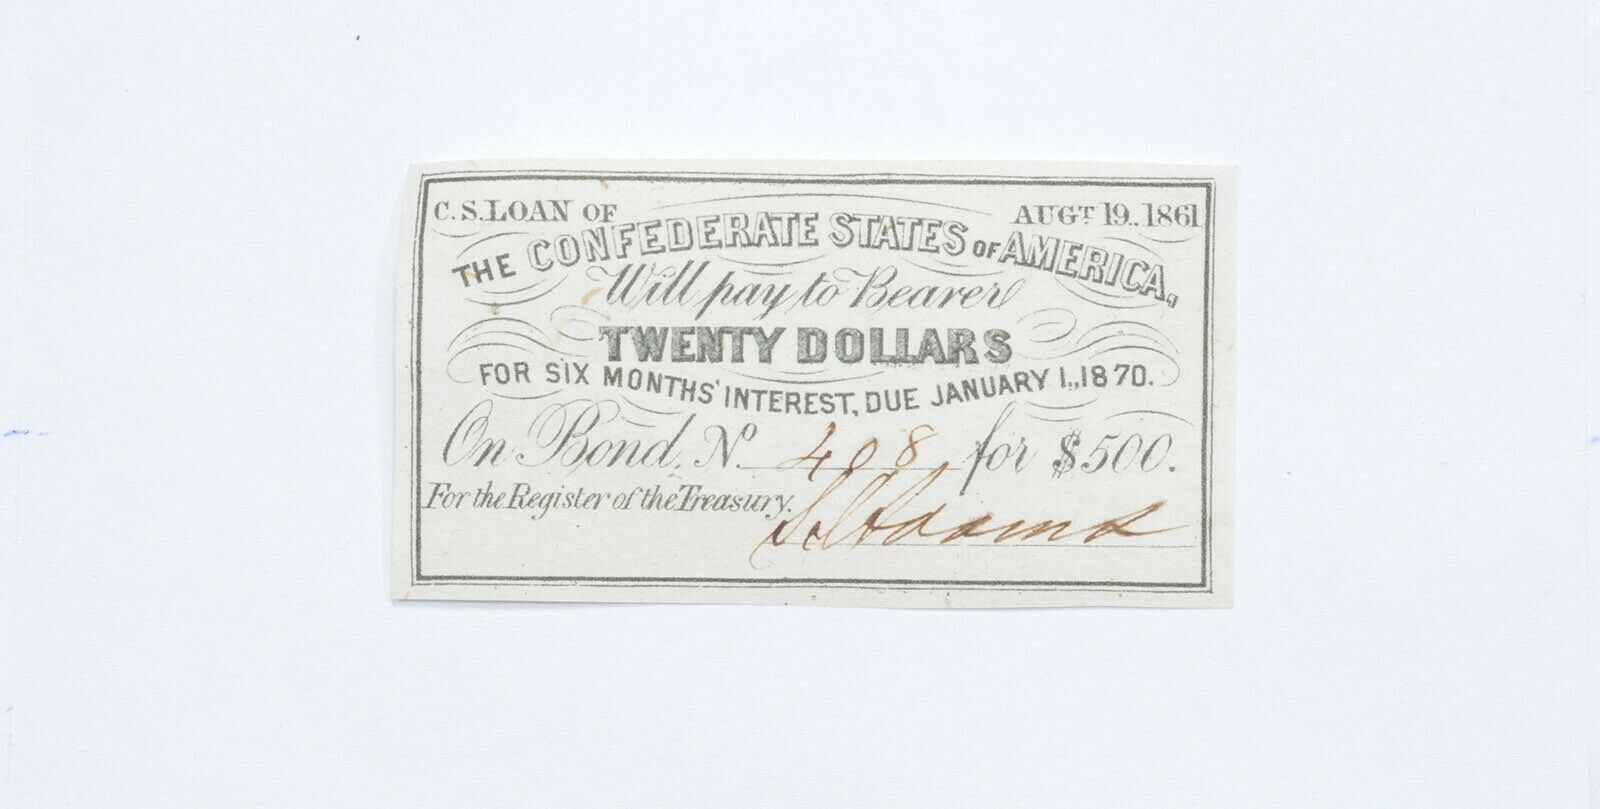 C.S. LOAN OF AUGT 19.. 1861
THE CONFEDERATE STATES OF AMERICA,
Will pay to Bearer
TWENTY DOLLARS
FOR SIX MONTHS' INTEREST, DUE JANUARY 1.., 1870.
On Bond, No. 408 for $500.
For the Register of the Treasury.
Adams